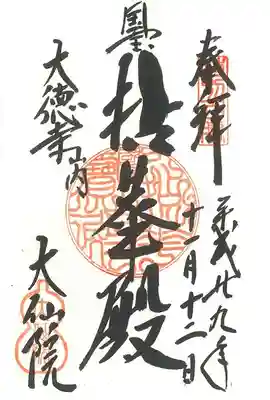 奉拝
平成廿九年
十一月十二日
拈華殿
大徳寺山内
大仙院